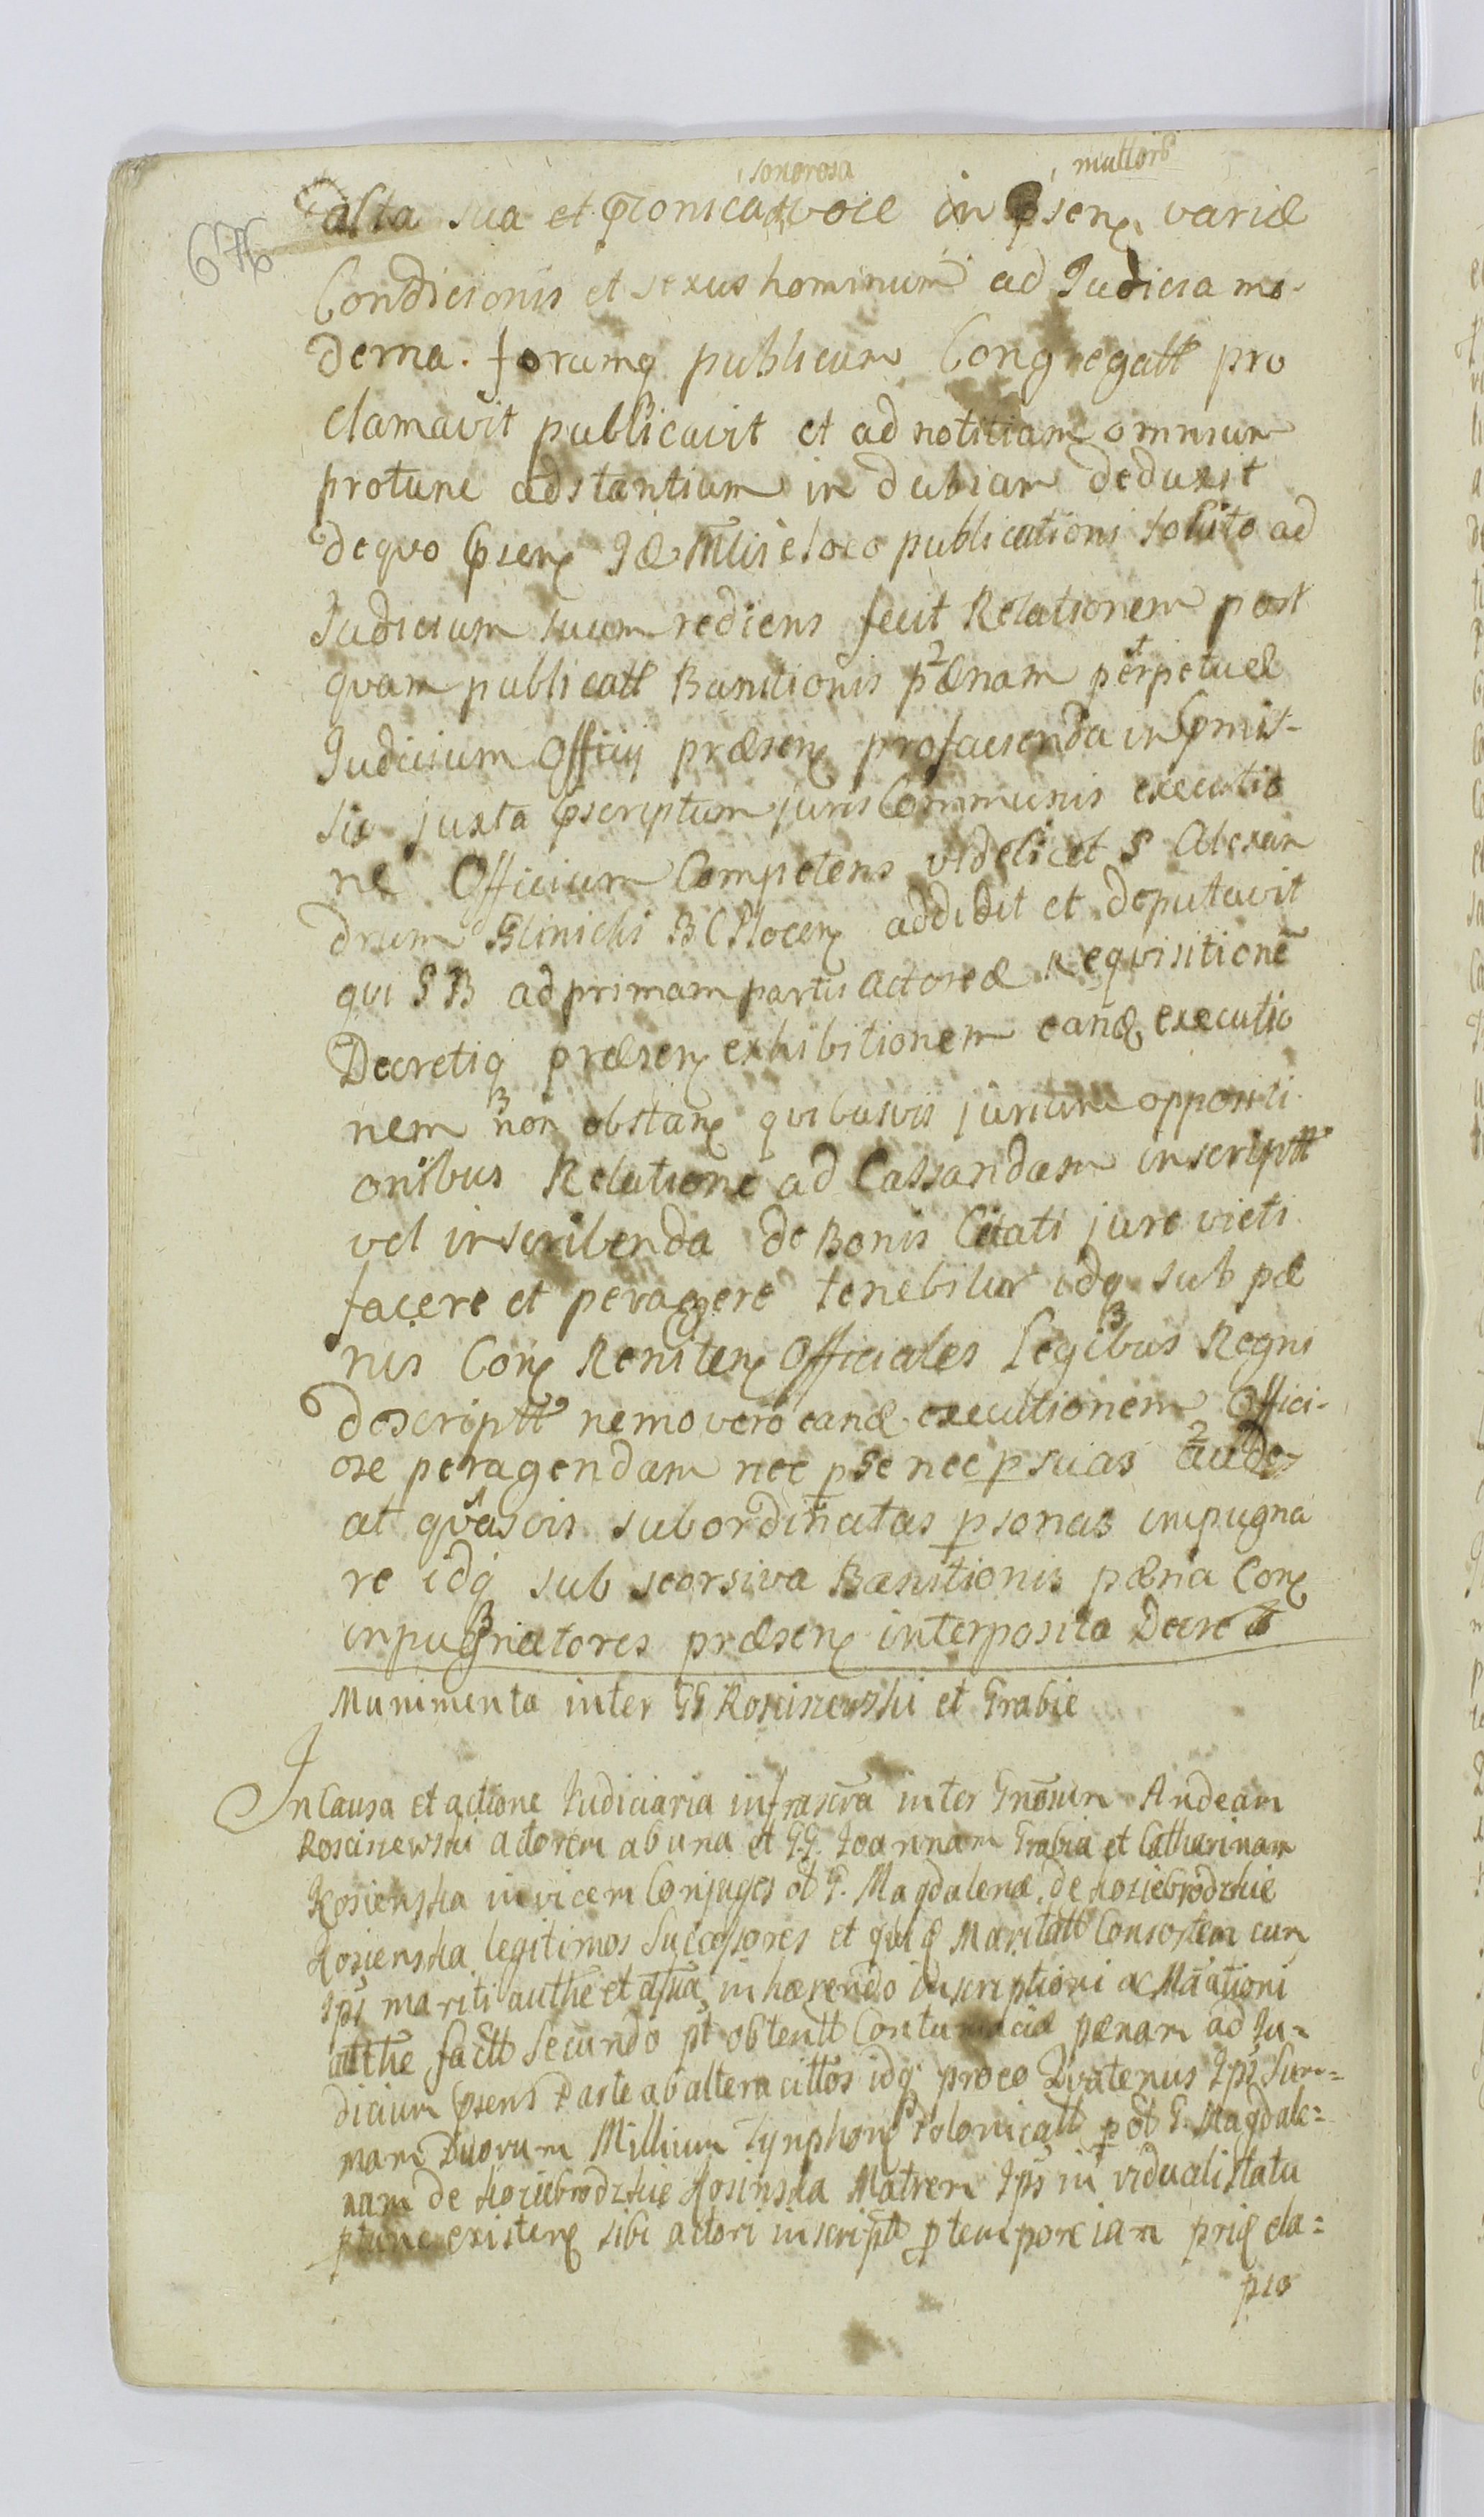 sonorosa multorb
676
alta sua et pconica voce in psen variæ
Condicionis et sexus hominum ad Judicia mo-
derna. forumq publicum Congregatt pro
clamavit publicavit et ad notitiam omnium
protunc adstantium in dubiam deduxit
dequo psen Jæ Mlis e loco publicationi solito ad
Judicium suum rediens fecit Relationem post
quam publicatt Banitionis pænam perpetuæ
Judicium Officij præsen profacienda in pmis-
sis juxta pscriptum juris Communis executio
ne Officium Competens videlicet S Alexan
drum Glinicki B C Plocen addidit et deputavit
qui S B ad primam partis actoreæ Requisitionē
Decretiq præsen exhibitionem eandæ executio
nem non obstan quibusvis jurium oppositi
onibus Relatione ad Cassandam inscriptt
vel inscribenda de Bonis Citati jure victi
facere et peragere tenebitur idq sub pæ
nis Con Reniten Officiales Legibus Regni
descriptt nemo vero eandæ executionem Offici-
ose peragendam nec p se nec p suas aude
at quasvis subordinatas psonas impugna
re idq sub seorsiva Banitionis pæna Con
inpugnatores præsen interposita Decreto
Munimenta inter GG Rosciszewski et Grabie
In Causa et actione Judiciaria infrascra inter Gnosum Andream
Rosciszewski actorem ab una et GG. Joannam Grabia et Catharinam
Kosienska invicem Conjuges ot G. Magdalenæ de Koziebrodzkie
Kosienska legitimos Successores et quiq Maritatt Consortem cum
Ipi mariti authe et assa, inhærendo inscriptioni ac Mãationi
authe factt Secundo pt obtentt Contumaciæ pænam ad Ju-
dicium psens Parte ab altera cittos idq proeo Quatenus Ipi Sum-
mam Duorum Millium Tynphon Polonicatt p ot G. Magdale-
nam de Koziebrodzkie Kosinska Matrem Ipi in viduali statu
ptunc existen sibi actori inscriptt p tempore iam priq ela-
pso